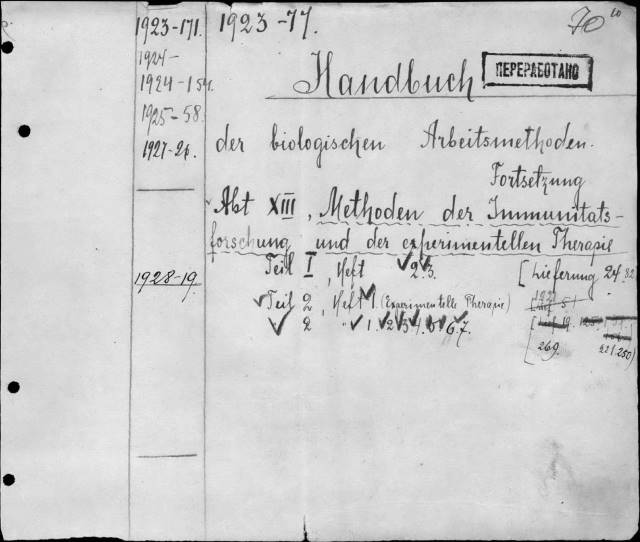 1923-171.
1924-
1924-154.
1925-58.
1927-26.
1928-19.
1923-77.
70
Handbuch
ПЕРЕРАБОТАНО
der biologischen Arbeitsmethoden.
Fortsetzung
Abt XIII, Methoden der Immunitäts-
forschung und der experimentellen Therapie
Teil I, Heft 2.3.
[Lieferung 24.82
Teil 2, Heft 1 (Experimentelle Therapie)
2 " 1. 2 3 4. 5 6 7.
269. 221.250)